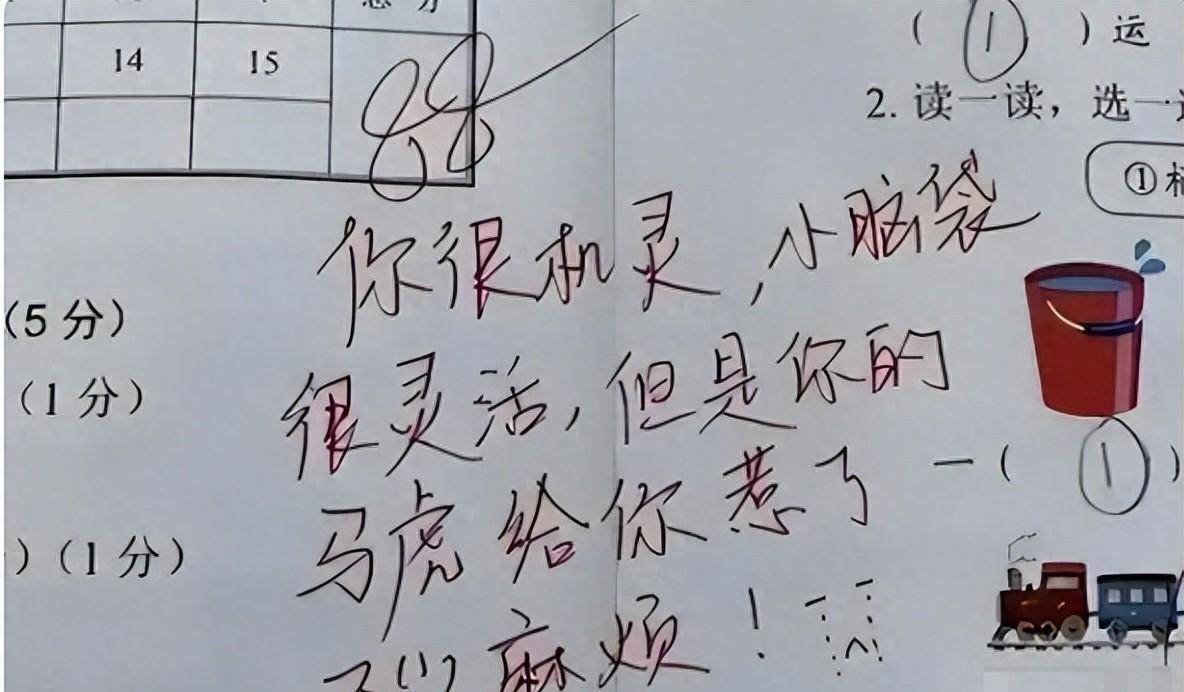 总分
14 15
88
你很机灵,小脑袋
很灵活,但是你的
马虎给你惹了
麻烦!
(5分)
(1分)
)(1分)
( 1 )运
2. 读一读,选一
①
一( 1 )